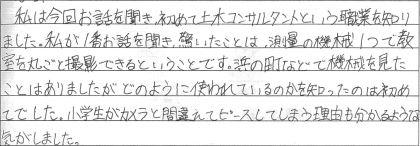 私は今回お話を聞き、初めて土木コンサルタントという職業を知り
ました。私が1番お話を聞き、驚いたことは、測量の機械1つで教
室を丸ごと撮影できるということです。浜の町などで機械を見た
ことはありましたがどのように使われているのかを知ったのは初め
てでした。小学生がカメラと間違えてピースしてしまう理由も分かるような
気がしました。